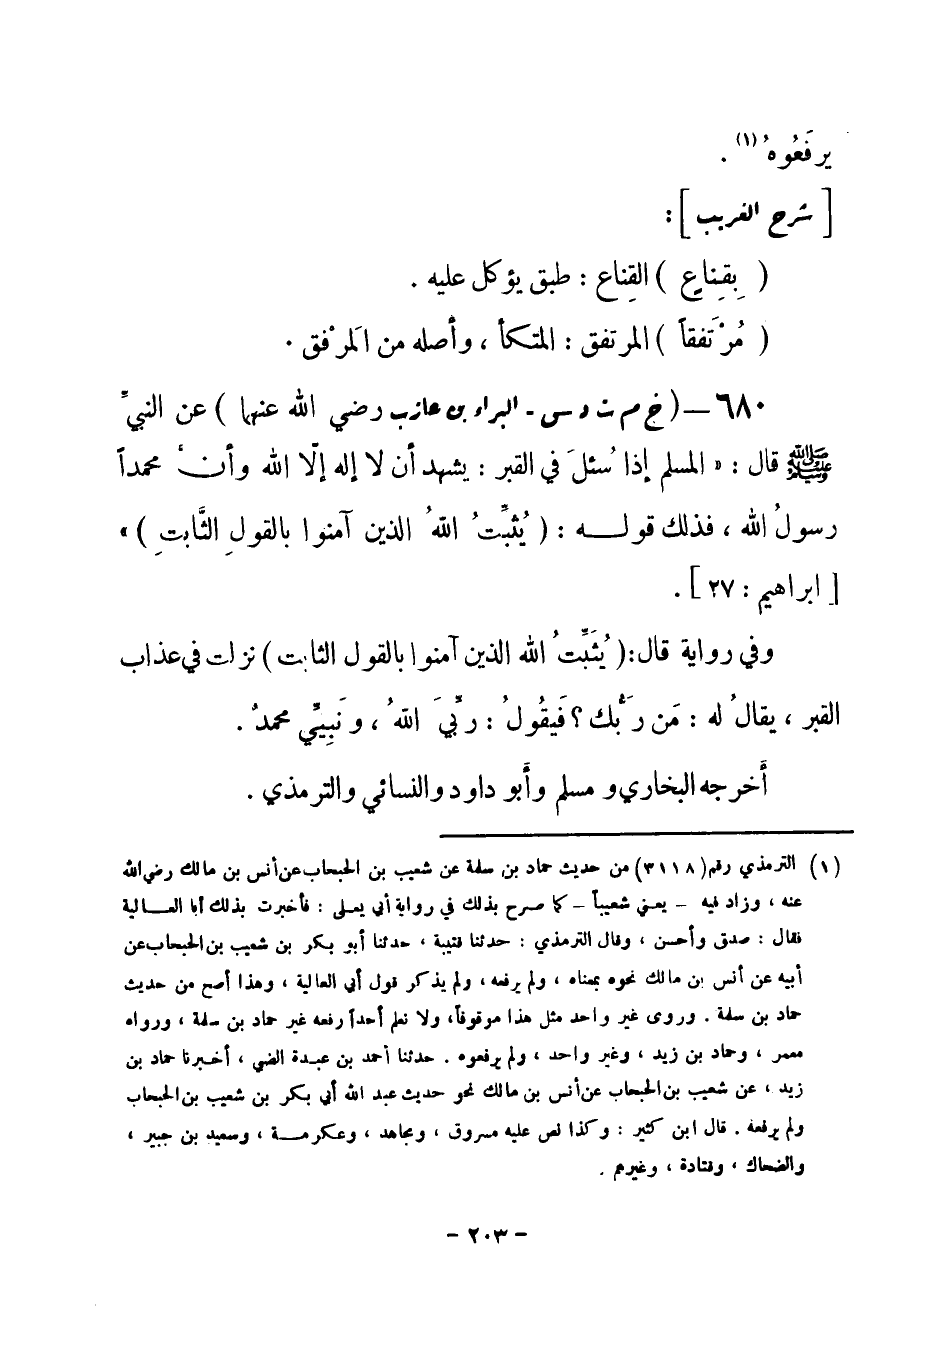 يرفَعُوهُ (١) .
[ شرح الغريب ] :
( بِقِناعٍ ) القِناع : طبق يؤكل عليه .
( مُرْتَفقاً ) المرتفق : المتكأ ، وأصله من المَرْفق .
٦٨٠ – ( خ م ت د س - البراء بن عازب رضي الله عنهما ) عن النبيِّ
ﷺ قال : « المسلم إذا سُئلَ في القبر : يشهد أن لا إله إلّا الله وأنَّ محمداً
رسولُ الله ، فذلك قولـــه : ( يُثبِّتُ اللهُ الذين آمنوا بالقولِ الثَّابتِ ) »
[ ابراهيم : ٢٧ ] .
وفي رواية قال: ( يُثَبِّتُ الله الذين آمنوا بالقول الثابت ) نزلت في عذاب
القبر ، يقالُ له : مَن رَبُّك ؟ فَيقُولُ : ربِّيَ اللهُ ، ونَبِيِّي محمدٌ .
أخرجه البخاري و مسلم وأبو داود والنسائي والترمذي .
(١) الترمذي رقم (٣١١٨) من حديث حماد بن سلمة عن شعيب بن الحبحاب عن أنس بن مالك رضي الله
عنه ، وزاد فيه – يعني شعيباً – كما صرح بذلك في رواية أبي يعلى : فأخبرت بذلك أبا العـــالية
فقال : صدق وأحسن ، وقال الترمذي : حدثنا قتيبة ، حدثنا أبو بكر بن شعيب بن الحبحاب عن
أبيه عن أنس بن مالك نحوه بمعناه ، ولم يرفعه ، ولم يذكر قول أبي العالية ، وهذا أصح من حديث
حماد بن سلمة . وروى غير واحد مثل هذا موقوفاً، ولا نعلم أحداً رفعه غير حماد بن سلمة ، ورواه
معمر ، وحماد بن زيد ، وغير واحد ، ولم يرفعوه . حدثنا أحمد بن عبدة الضبي ، أخبرنا حماد بن
زيد ، عن شعيب بن الحبحاب عن أنس بن مالك نحو حديث عبد الله أبي بكر بن شعيب بن الحبحاب
ولم يرفعه . قال ابن كثير : وكذا نص عليه مسروق ، ومجاهد ، وعكرمـــة ، وسعيد بن جبير ،
والضحاك ، وقتادة ، وغيرهم .
- ٢٠٣ -